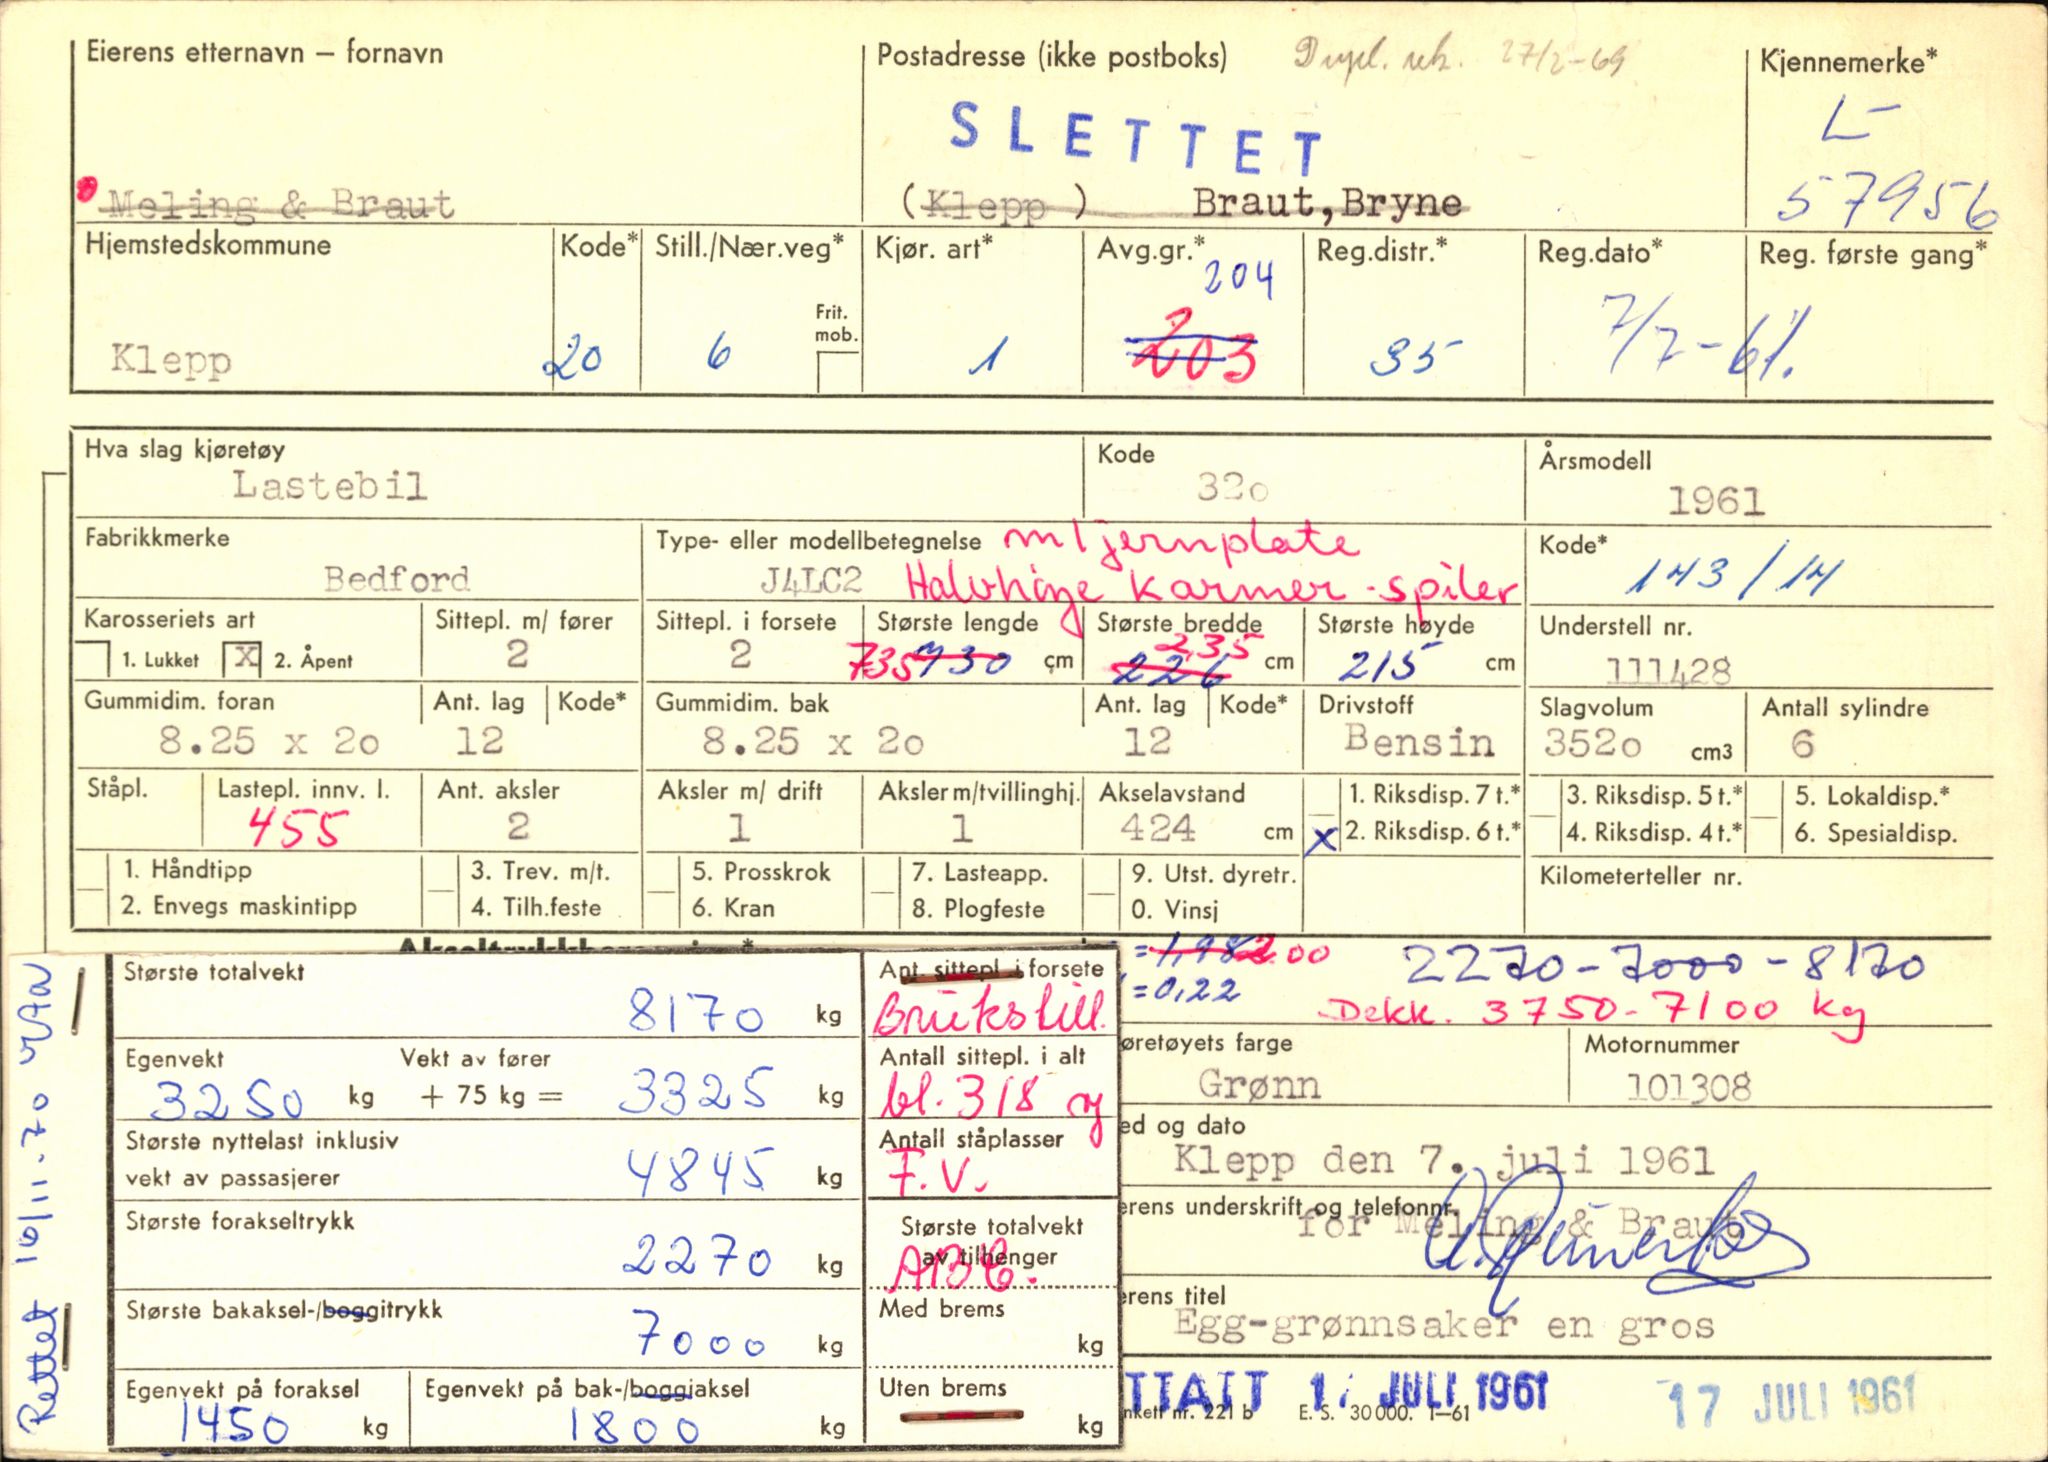 Eierens etternavn – fornavn
Postadresse (ikke postboks)
Dupl. utk. 27/2-69
Kjennemerke*
L-
57956
SLETTET
Meling & Braut
(Klepp) Braut, Bryne
Hjemstedskommune
Kode*
Still./Nær.veg*
Kjør. art*
Avg.gr.*
Reg.distr.*
Reg.dato*
Reg. første gang*
204
Frit. mob.
Klepp
20
6
1
203
35
7/7-61.
Hva slag kjøretøy
Kode
Årsmodell
Lastebil
320
1961
Fabrikkmerke
Type- eller modellbetegnelse
m/jernplate
Kode*
Bedford
J4LC2
Halvhöye karmer-spiler
143/14
Karosseriets art
Sittepl. m/ fører
Sittepl. i forsete
Største lengde
Største bredde
Største høyde
Understell nr.
1. Lukket
X 2. Åpent
2
2
735 730 cm
235 226 cm
215 cm
111428
Gummidim. foran
Ant. lag
Kode*
Gummidim. bak
Ant. lag
Kode*
Drivstoff
Slagvolum
Antall sylindre
8.25 x 20
12
8.25 x 20
12
Bensin
3520 cm3
6
Ståpl.
Lastepl. innv. l.
Ant. aksler
Aksler m/ drift
Aksler m/tvillinghj.
Akselavstand
1. Riksdisp. 7 t.*
3. Riksdisp. 5 t.*
5. Lokaldisp.*
455
2
1
1
424 cm
x 2. Riksdisp. 6 t.*
4. Riksdisp. 4 t.*
6. Spesialdisp.
1. Håndtipp
3. Trev. m/t.
5. Prosskrok
7. Lasteapp.
9. Utst. dyretr.
Kilometerteller nr.
2. Envegs maskintipp
4. Tilh.feste
6. Kran
8. Plogfeste
0. Vinsj
= 1,98 200
2270-7000-8170
= 0,22
Dekk. 3750-7100 kg
Største totalvekt
8170 kg
Ant. sittepl. i forsete
Brukstill.
Egenvekt
3250 kg
Vekt av fører
+ 75 kg =
3325 kg
Antall sittepl. i alt
bl. 318 og
Største nyttelast inklusiv
vekt av passasjerer
4845 kg
Antall ståplasser
F.V.
Største forakseltrykk
2270 kg
Største totalvekt
av tilhenger
Største bakaksel-/boggitrykk
7000 kg
Med brems
kg
Egenvekt på foraksel
1450 kg
Egenvekt på bak-/boggiaksel
1800 kg
Uten brems
kg
Rettet 16/11-70
øretøyets farge
Motornummer
Grønn
101308
ed og dato
Klepp den 7. juli 1961
erens underskrift og telefonnr.
for Meling & Braut
erens titel
Egg-grønnsaker en gros
TTATT 17 JULI 1961
17 JULI 1961
nkett nr. 221 b E. S. 30 000. 1–61